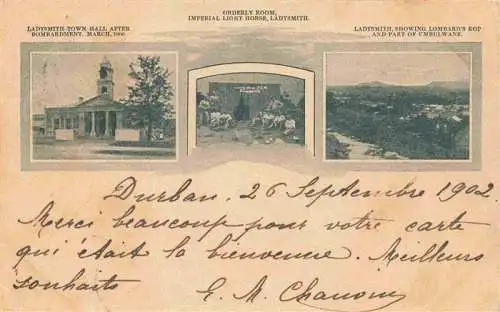 ORDERLY ROOM,
IMPERIAL LIGHT HORSE, LADYSMITH.
LADYSMITH TOWN HALL AFTER
BOMBARDMENT, MARCH, 1900.
LADYSMITH, SHOWING LOMBARD'S KOP
AND PART OF UMBULWANE.
Durban, 26 Septembre 1902
Merci beaucoup pour votre carte
qui était la bienvenue. Meilleurs
souhaits